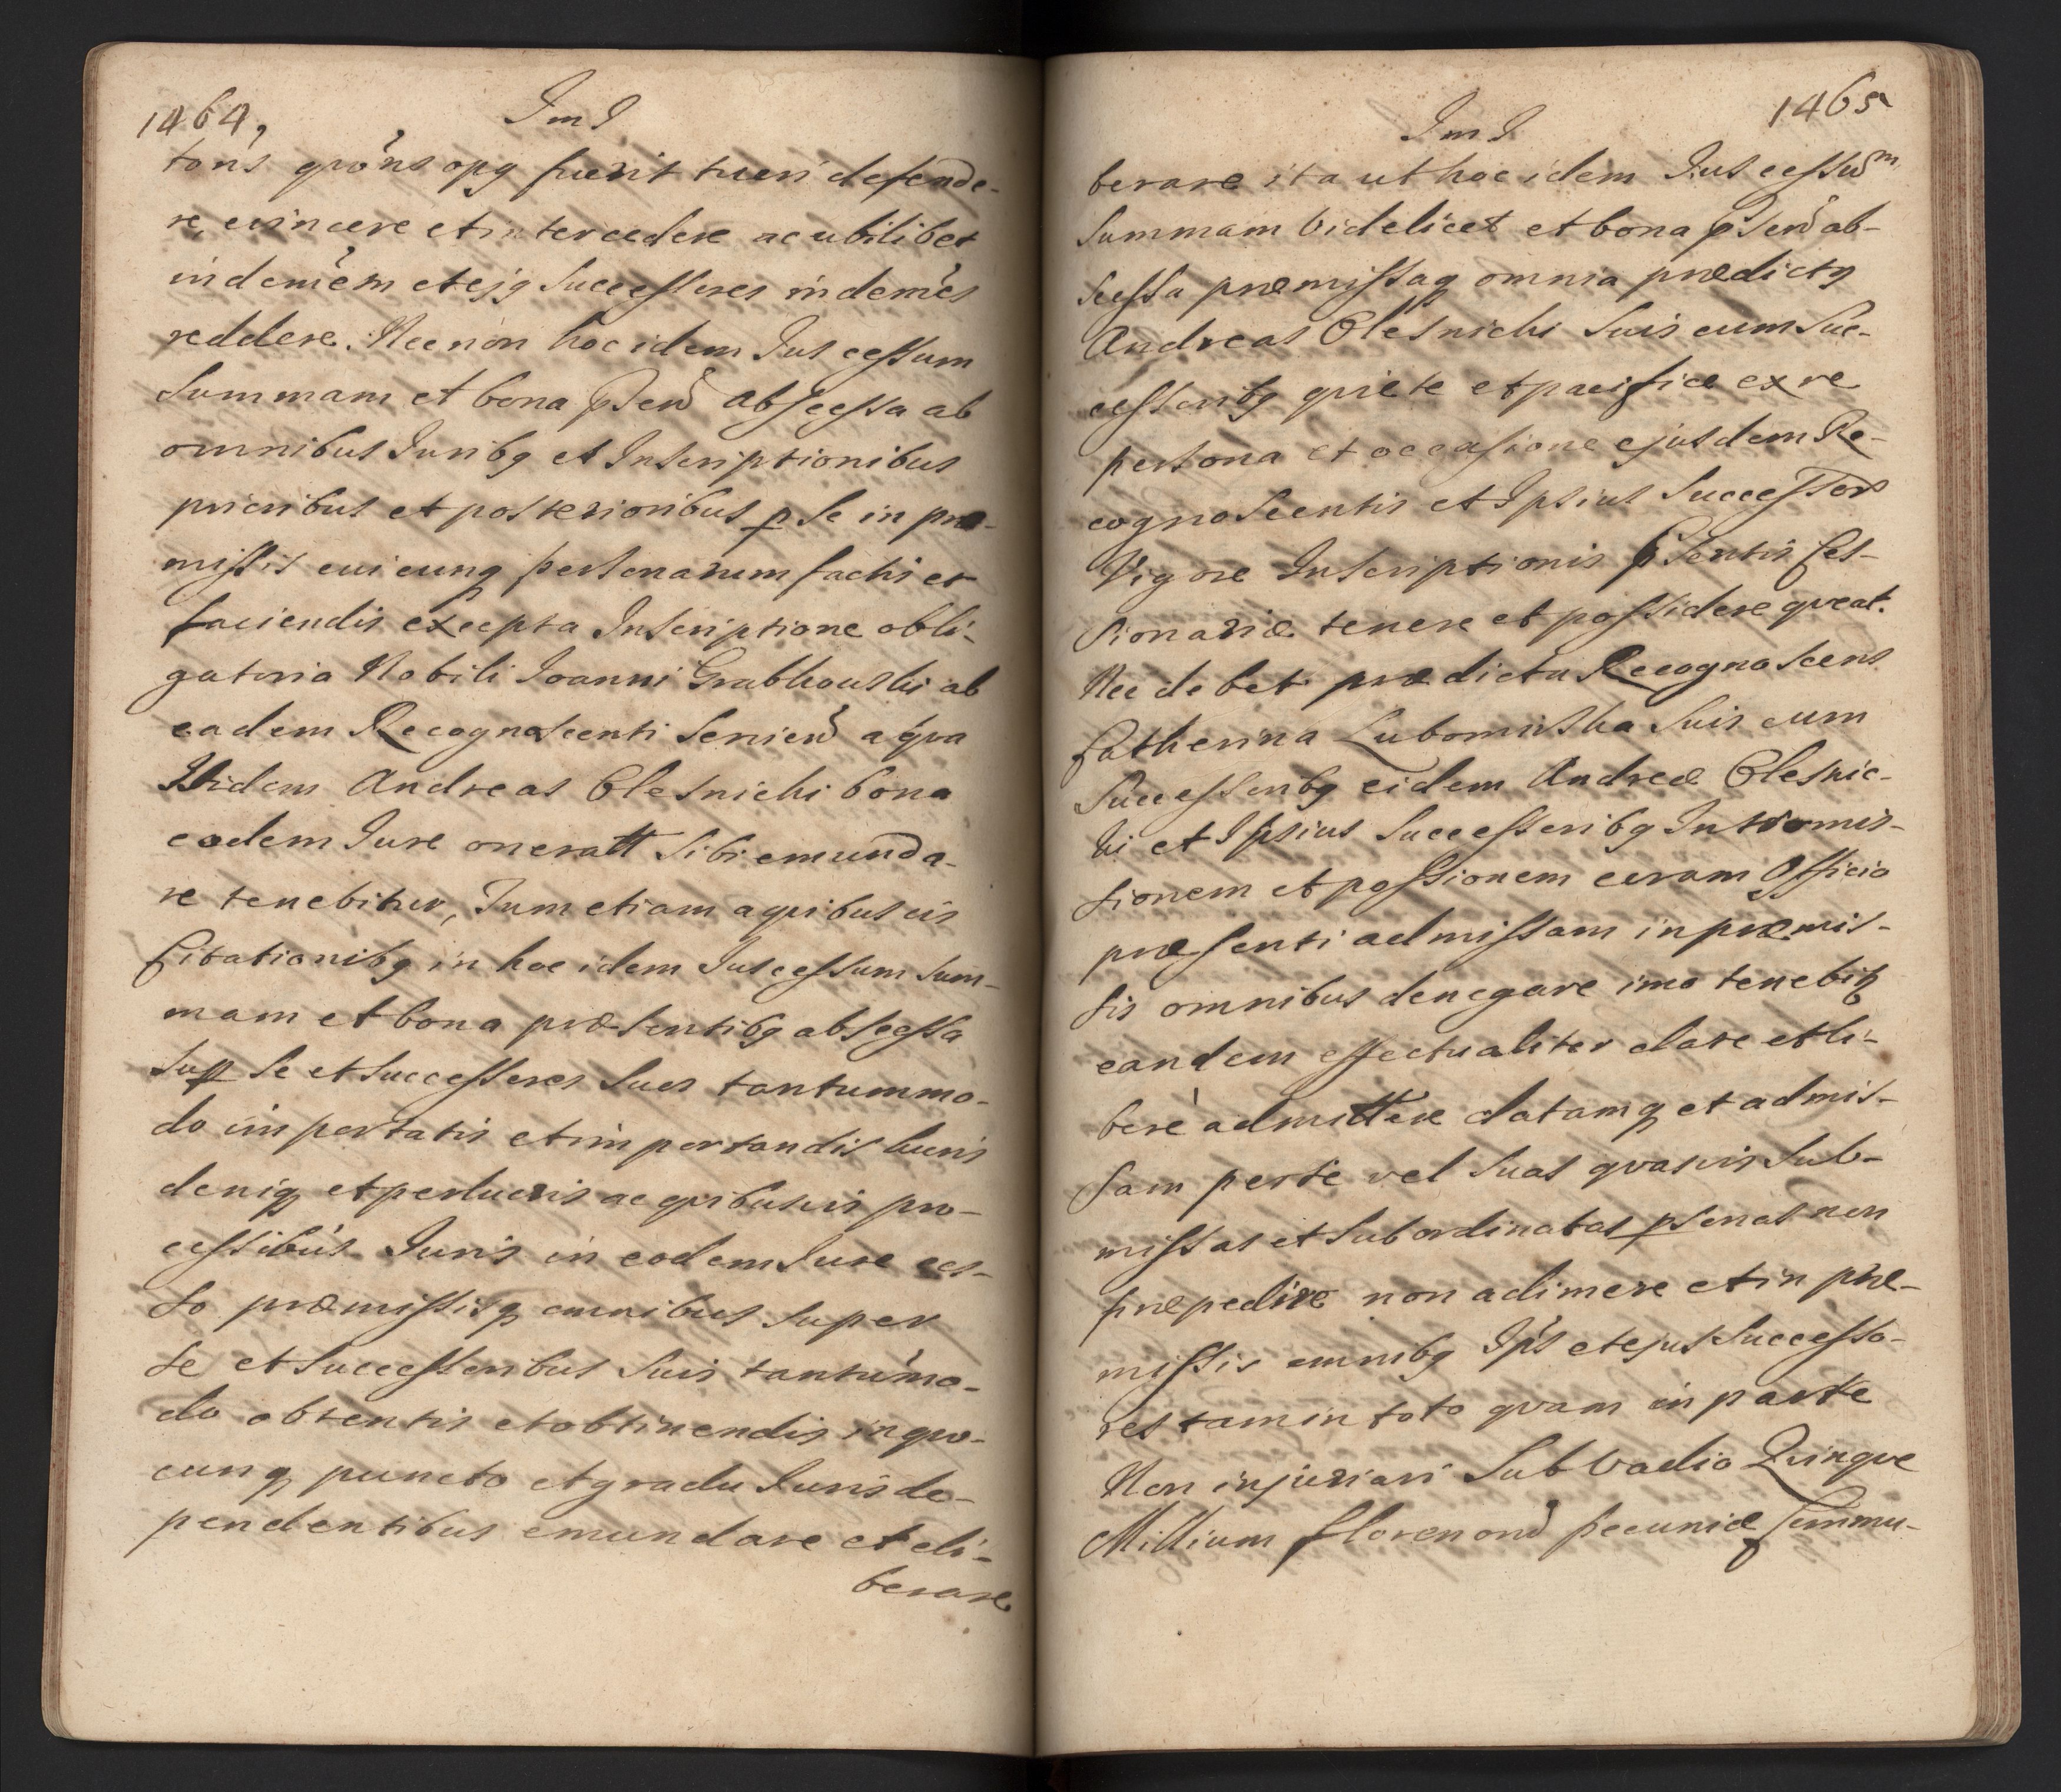 1464,
ImI
tońs qvońs opq fuerit tueri defende-
re, evincere et intercedere ac ubilibet
indemem et ejq Successores indemes
reddere. Nec non hoc idem Jus cessum
Summam et bona abscessa ab
omnibus Juribq et Inscriptionibus
prioribus et posterioribus p Se in præ-
missis cuicunq personarum factis et
faciendis excepta Inscriptione obli-
gatoria Nobili Joanni Grabkowski ab
eadem Recognoscenti a qva
Ibidem Andreas Olesnicki bona
eodem Jure oneratt Sibi emunda-
re tenebitur, Tum etiam a qvibusvis
Citationibq in hoc idem Jus cessum Sum-
mam et bona præsentibq abscessa
Sup Se et Successores Suos tantummo-
do importatis et importandis lucris
deniq et perlucris ac qvibusvis pro-
cessibus Juris in eodem Jure ces-
so præmissisq omnibus Super
se et Successoribus Suis tantumo-
do obtentis et obtinendis in qvo-
cunq puncto et gradu Juris de-
pendentibus emundare et eli-
berare
1465
ImI
berare ita ut hoc idem Jus cessum
Summam Videlicet et bona ab-
scessa præmissaq omnia prædictq
Andreas Olesnicki Suis cum Suc-
cessoribq qviete et pacifice ex re
persona et occasione ejusdem Re-
cognoscentis et Ipsius Successor
Vigore Inscriptionis pSentis Ces-
sionariæ tenere et possidere qveat.
Nec debet prædicta Recognoscens
Catherina Lubomirska Suis cum
Successoribq eidem Andreæ Olesnic-
ki et Ipsius Successoribq Intromis-
sionem et possionem coram Officio
præsenti admissam in præmis-
sis omnibus denegare imo tenebiq
eandem effectualiter dare et li-
berè admittere datamq et admis-
sam per se vel Suas qvasvis Sub-
missas et Subordinatas psonas non
præpedire non adimere et in præ-
missis omnibq Ips et ejus Successo-
res tam in toto qvam in parte
Non injuriari Sub Vadio Qvinqve
Millium florenor pecuniæ